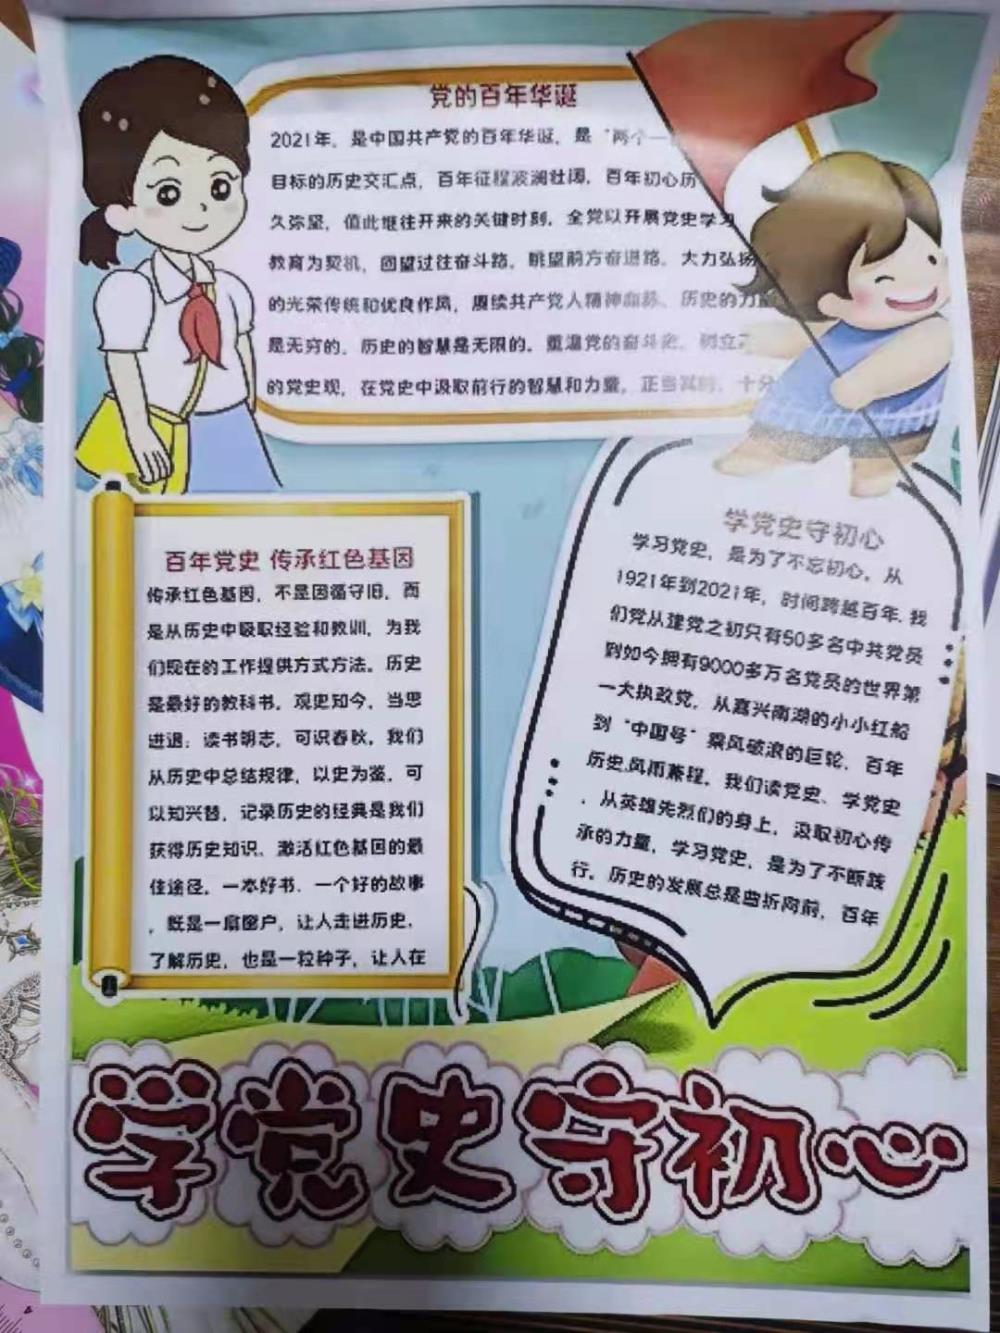 党的百年华诞
2021年，是中国共产党的百年华诞，是“两个一
目标的历史交汇点，百年征程波澜壮阔，百年初心历
久弥坚，值此继往开来的关键时刻，全党以开展党史学习
教育为契机，回望过往奋斗路，眺望前方奋进路，大力弘扬
的光荣传统和优良作风，赓续共产党人精神血脉、历史的力量
是无穷的，历史的智慧是无限的。重温党的奋斗史，树立正
的党史观，在党史中汲取前行的智慧和力量，正当其时，十分
百年党史 传承红色基因
传承红色基因，不是因循守旧，而
是从历史中吸取经验和教训，为我
们现在的工作提供方式方法。历史
是最好的教科书。观史知今，当思
进退；读书明志，可识春秋，我们
从历史中总结规律，以史为鉴，可
以知兴替，记录历史的经典是我们
获得历史知识、激活红色基因的最
佳途径。一本好书、一个好的故事
，既是一扇窗户，让人走进历史，
了解历史，也是一粒种子，让人在
学党史守初心
学习党史，是为了不忘初心。从
1921年到2021年，时间跨越百年，我
们党从建党之初只有50多名中共党员
到如今拥有9000多万名党员的世界第
一大执政党，从嘉兴南湖的小小红船
到“中国号”乘风破浪的巨轮，百年
历史，风雨兼程。我们读党史、学党史
，从英雄先烈们的身上，汲取初心传
承的力量，学习党史，是为了不断践
行。历史的发展总是曲折向前，百年
学党史守初心